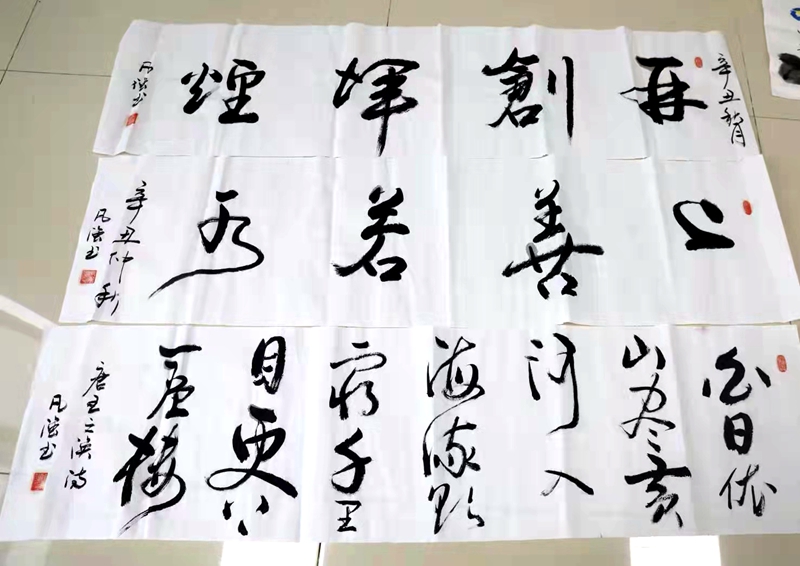 辛丑秋月
再創煇煌
凡书
上善若水
辛丑仲秋
凡书
白日依
山尽黄
河入
海流欲
穷千里
目更上
一层楼
唐王之涣诗
凡书